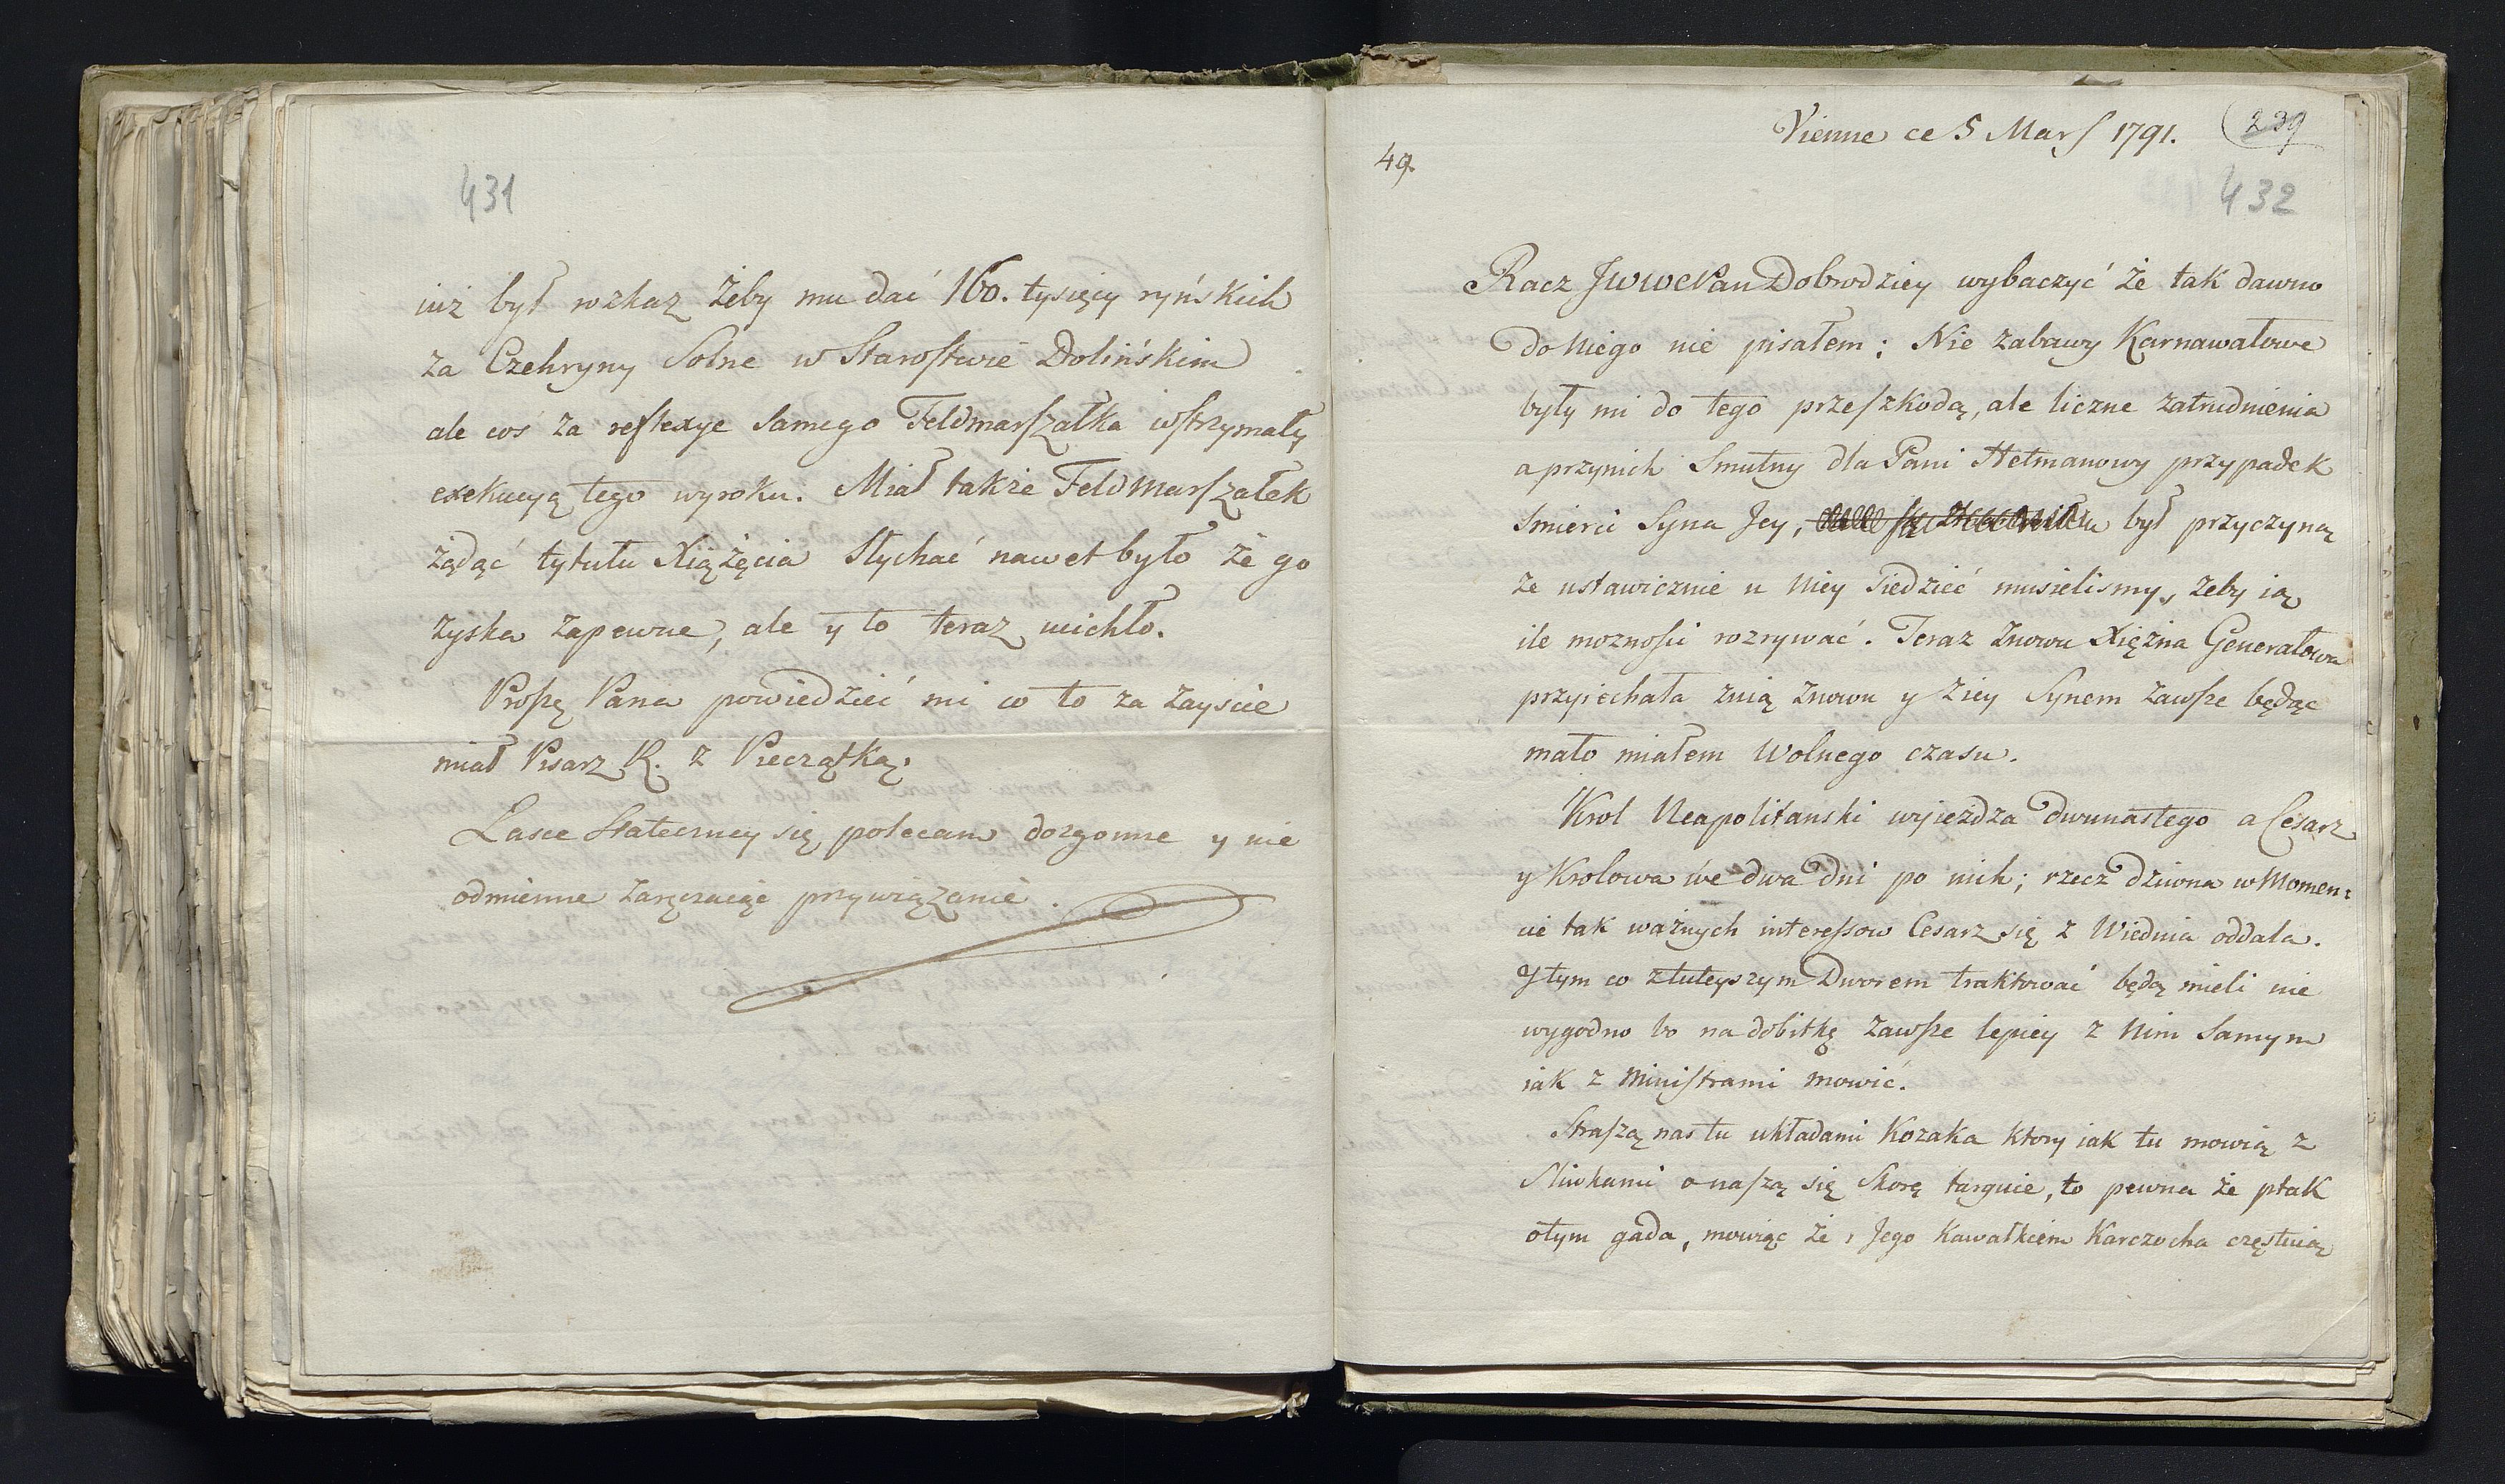 431
iuż był rozkaz żeby mu dać 160. tysięcy ryńskich
za Czehryny Solne w Starostwie Dolińskim
ale coś za reflexye samego Feldmarszałka wstrzymały
exekucyą tego wyroku. Miał także Feldmarszałek
żądać tytułu Xiążęcia Słychać nawet było że go
zyska zapewne, ale y to teraz ucichło.
Proszę Pana powiedzieć mi co to za zayście
miał Pisarz R. z Pieczątką.
Łasce Stateczney się polecam dozgonne y nie
odmienne zaręczaiąc przywiązanie.
Vienne ce 5 Mars 1791.
239
49.
432
Racz JWWCPan Dobrodziey wybaczyć że tak dawno
do Niego nie pisałem; Nie zabawy Karnawałowe
były mi do tego przeszkodą, ale liczne zatrudnienia
a przynich Smutny dla Pani Hetmanowy przypadek
Smierci Syna Jey, był przyczyną
że ustawicznie u Niey Siedzieć musielismy, żeby ią
ile moznosci rozrywać. Teraz znowu Xiężna Generałowa
przyiechała znią znowu y ziey Synem zawsze będąc
mało miałem Wolnego czasu.
Krol Neapolitanski wyieżdza dwunastego a Cesarz
y Krolowa we dwa dni po nich; rzecz dziwna w Momen:
cie tak ważnych interessow Cesarz się z Wiednia oddala.
Y tym co ztuteyszym Dworem traktować będą mieli nie
wygodno bo na dobitkę zawsze lepiey z Nim Samym
iak z Ministrami mowić.
Straszą nas tu układami Kozaka ktory iak tu mowią z
Sliwkami o naszą się Skorę targuie, to pewna że ptak
otym gada, mowiąc że i Jego Kawałkiem Karczocha częstuią